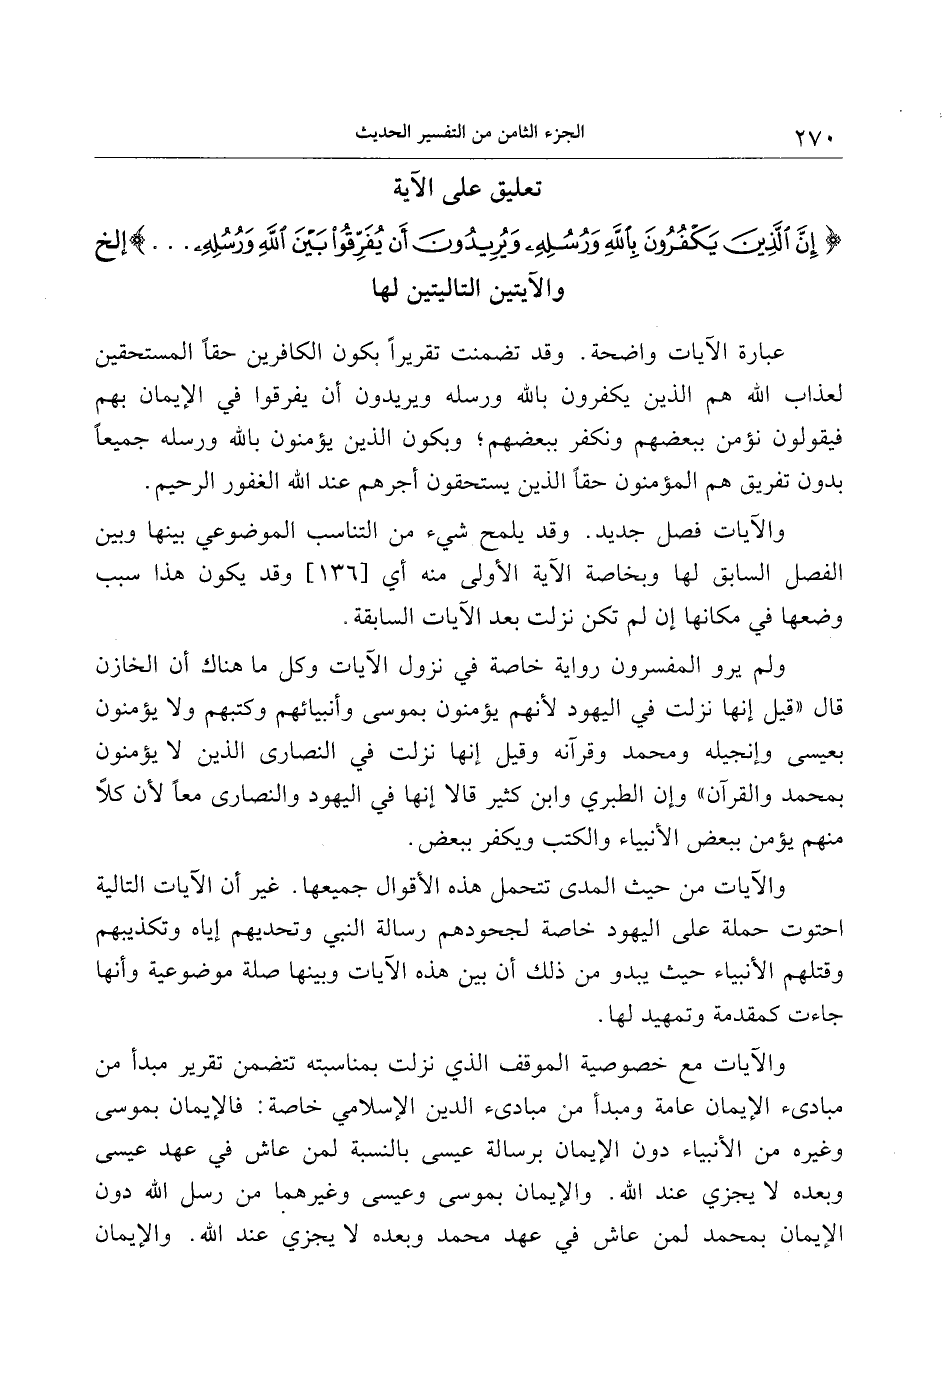 ٢٧٠
الجزء الثامن من التفسير الحديث
تعليق على الآية
﴿ إِنَّ ٱلَّذِينَ يَكْفُرُونَ بِٱللَّهِ وَرُسُلِهِۦ وَيُرِيدُونَ أَن يُفَرِّقُوا۟ بَيْنَ ٱللَّهِ وَرُسُلِهِۦ . . . ﴾ إلخ
والآيتين التاليتين لها
عبارة الآيات واضحة. وقد تضمنت تقريراً بكون الكافرين حقاً المستحقين
لعذاب الله هم الذين يكفرون بالله ورسله ويريدون أن يفرقوا في الإيمان بهم
فيقولون نؤمن ببعضهم ونكفر ببعضهم؛ وبكون الذين يؤمنون بالله ورسله جميعاً
بدون تفريق هم المؤمنون حقاً الذين يستحقون أجرهم عند الله الغفور الرحيم.
والآيات فصل جديد. وقد يلمح شيء من التناسب الموضوعي بينها وبين
الفصل السابق لها وبخاصة الآية الأولى منه أي [١٣٦] وقد يكون هذا سبب
وضعها في مكانها إن لم تكن نزلت بعد الآيات السابقة.
ولم يرو المفسرون رواية خاصة في نزول الآيات وكل ما هناك أن الخازن
قال «قيل إنها نزلت في اليهود لأنهم يؤمنون بموسى وأنبيائهم وكتبهم ولا يؤمنون
بعيسى وإنجيله ومحمد وقرآنه وقيل إنها نزلت في النصارى الذين لا يؤمنون
بمحمد والقرآن» وإن الطبري وابن كثير قالا إنها في اليهود والنصارى معاً لأن كلاً
منهم يؤمن ببعض الأنبياء والكتب ويكفر ببعض.
والآيات من حيث المدى تتحمل هذه الأقوال جميعها. غير أن الآيات التالية
احتوت حملة على اليهود خاصة لجحودهم رسالة النبي وتحديهم إياه وتكذيبهم
وقتلهم الأنبياء حيث يبدو من ذلك أن بين هذه الآيات وبينها صلة موضوعية وأنها
جاءت كمقدمة وتمهيد لها.
والآيات مع خصوصية الموقف الذي نزلت بمناسبته تتضمن تقرير مبدأ من
مبادىء الإيمان عامة ومبدأ من مبادىء الدين الإسلامي خاصة: فالإيمان بموسى
وغيره من الأنبياء دون الإيمان برسالة عيسى بالنسبة لمن عاش في عهد عيسى
وبعده لا يجزي عند الله. والإيمان بموسى وعيسى وغيرهما من رسل الله دون
الإيمان بمحمد لمن عاش في عهد محمد وبعده لا يجزي عند الله. والإيمان